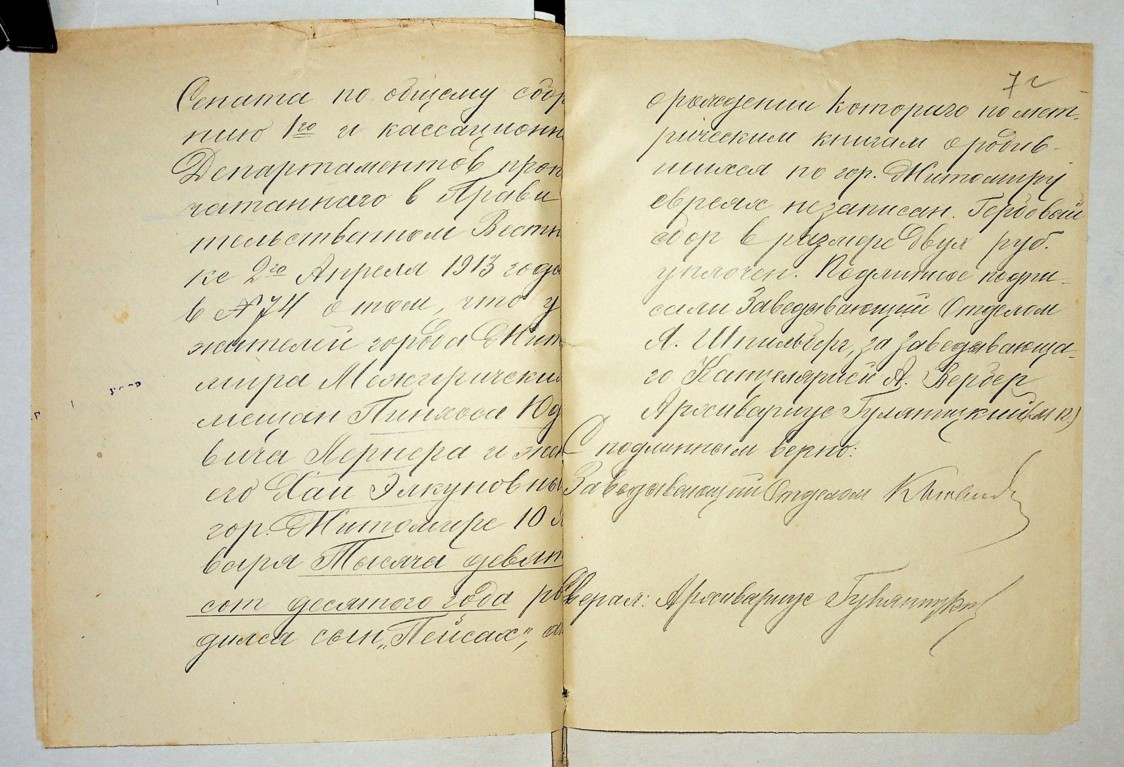 Сената по общему собр
нию 1го и кассационн
Департаментов, проп
чатаннаго в Прави
тельственном Вестн
ке 2го Апреля 1913 года
в № 74 о том, что у
жителей города Жит
мира Межиричских
мещан Пинхоса Юд
вича Лернера и жен
его Хаи Элкуновны
гор. Житомире 10 Я
варя Тысяча девят
сот десятого года ро
дился сын „Пейсах", о
7
о рождении котораго по мет-
рическим книгам о родив-
шихся по гор. Житомиру
евреях незаписан. Гербовый
сбор в размере двух руб.
уплочен. Подлинное подпи-
сали Заведывающий Отделом
А. Шпильберг, за заведывающа-
го Канцелярией А. Вербер
Архивариус Гулятицкий (М П.)
С подлинным верно:
Заведывающий Отделом
Сверял: Архивариус